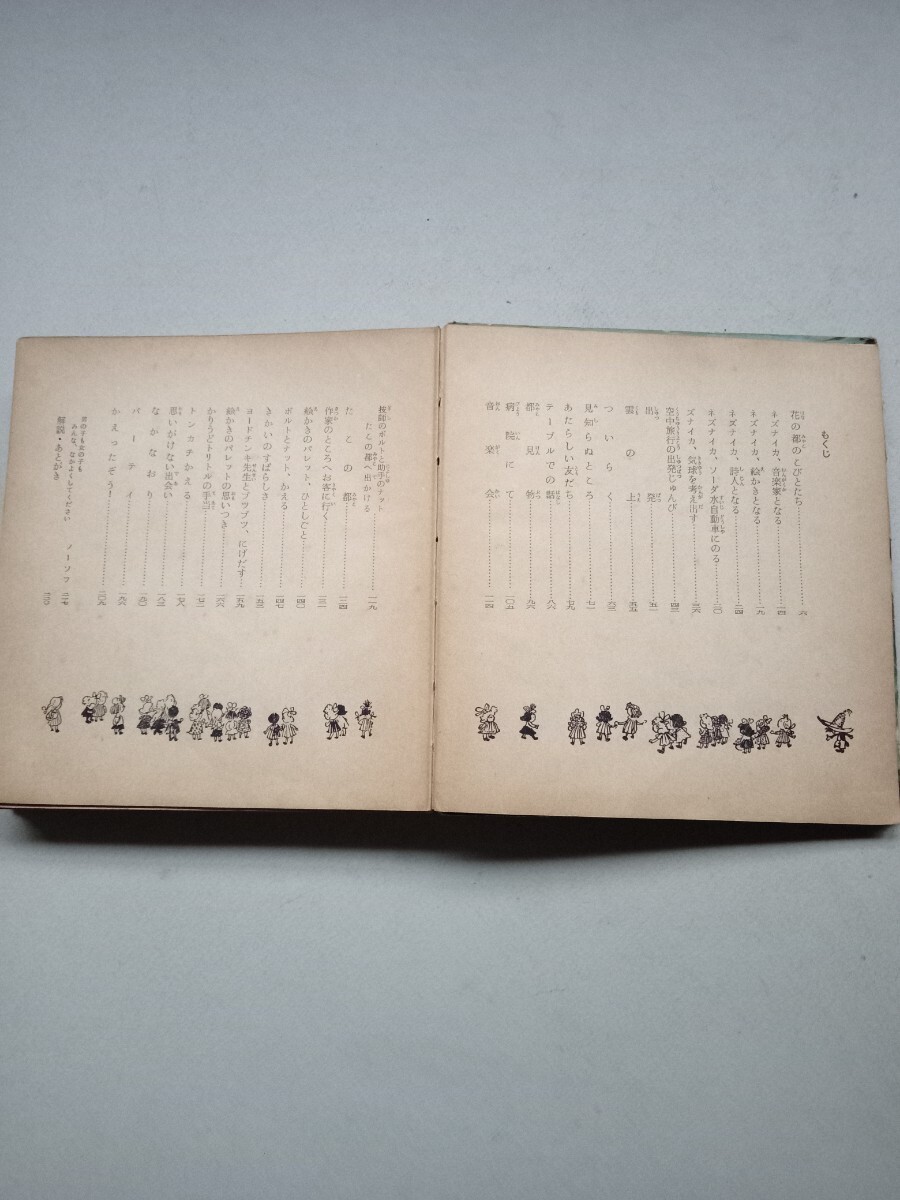 もくじ
花の都のこびとたち……六
ネズナイカ、音楽家となる……一四
ネズナイカ、絵かきとなる……一九
ネズナイカ、詩人となる……二四
ネズナイカ、ソーダ水自動車にのる……三〇
ズナイカ、気球を考え出す……三六
空中旅行の出発じゅんび……四三
出発……五一
雲の上……五五
ついらく……六三
見知らぬところ……七一
あたらしい友だち……七九
テーブルでの話……八六
都見物……九六
病院にて……一〇五
音楽会……一一四
技師のボルトと助手のナット
たこの都へ出かける……一一九
たこの都……一二四
作家のところへお客に行く……一三一
絵かきのパレット、ひとしごと……一四〇
ボルトとナット、かえる……一四七
きかいのすばらしさ……一五三
ヨードチンキ先生とブツブツ、にげだす……一五九
絵かきのパレットの思いつき……一六六
かりうどトリトルの手当……一七二
トンカチかえる……一七八
思いがけない出会い……一八三
なかなおり……一九〇
パーティー……一九六
かえったぞう！……二〇九
男の子も女の子も
みんな、なかよくしてください　ノーソフ　二一七
解説・あとがき